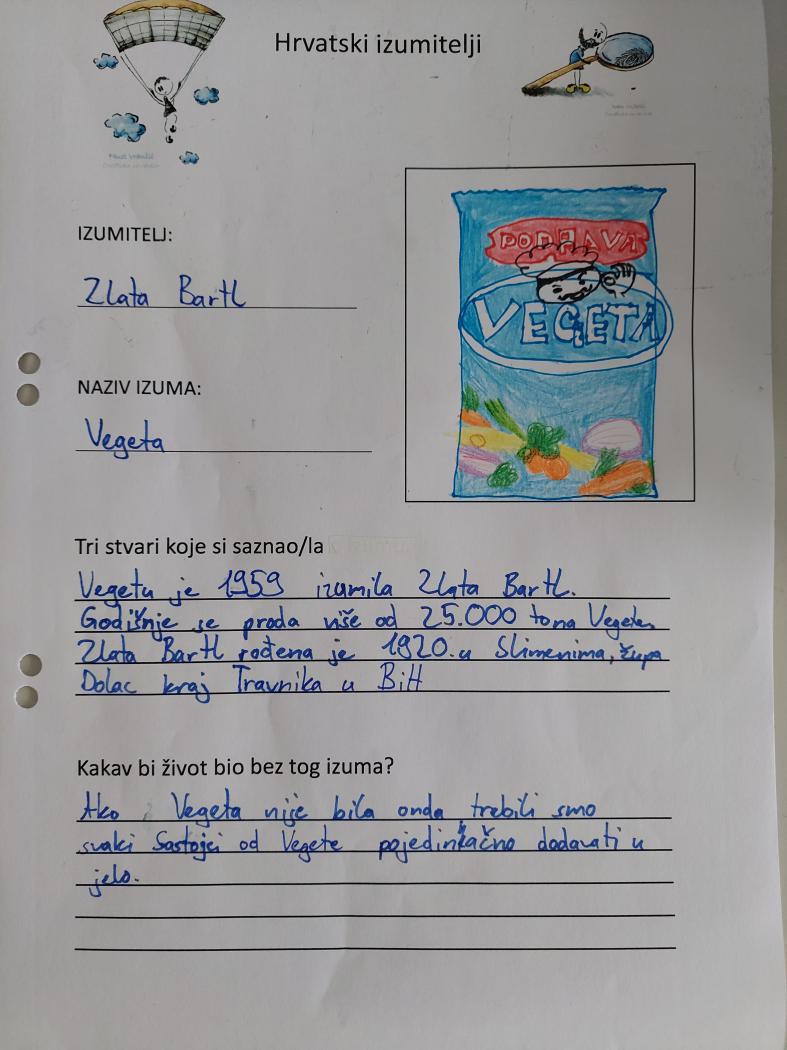 Hrvatski izumitelji
Faust Vrančić
IZUMITELJ:
Zlata Bartl
PODRAVA
VEGETA
NAZIV IZUMA:
Vegeta
Tri stvari koje si saznao/la
Vegetu je 1959 izumila Zlata Bartl.
Godišnje se proda više od 25.000 tona Vegete.
Zlata Bartl rođena je 1920. u Slimenima, župa
Dolac kraj Travnika u BiH
Kakav bi život bio bez tog izuma?
Ako Vegeta nije bila onda trebili smo
svaki Sastojci od Vegete pojedinkačno dodavati u
jelo.